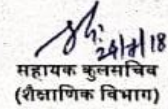 24/7/18
सहायक कुलसचिव
(शैक्षाणिक विभाग)